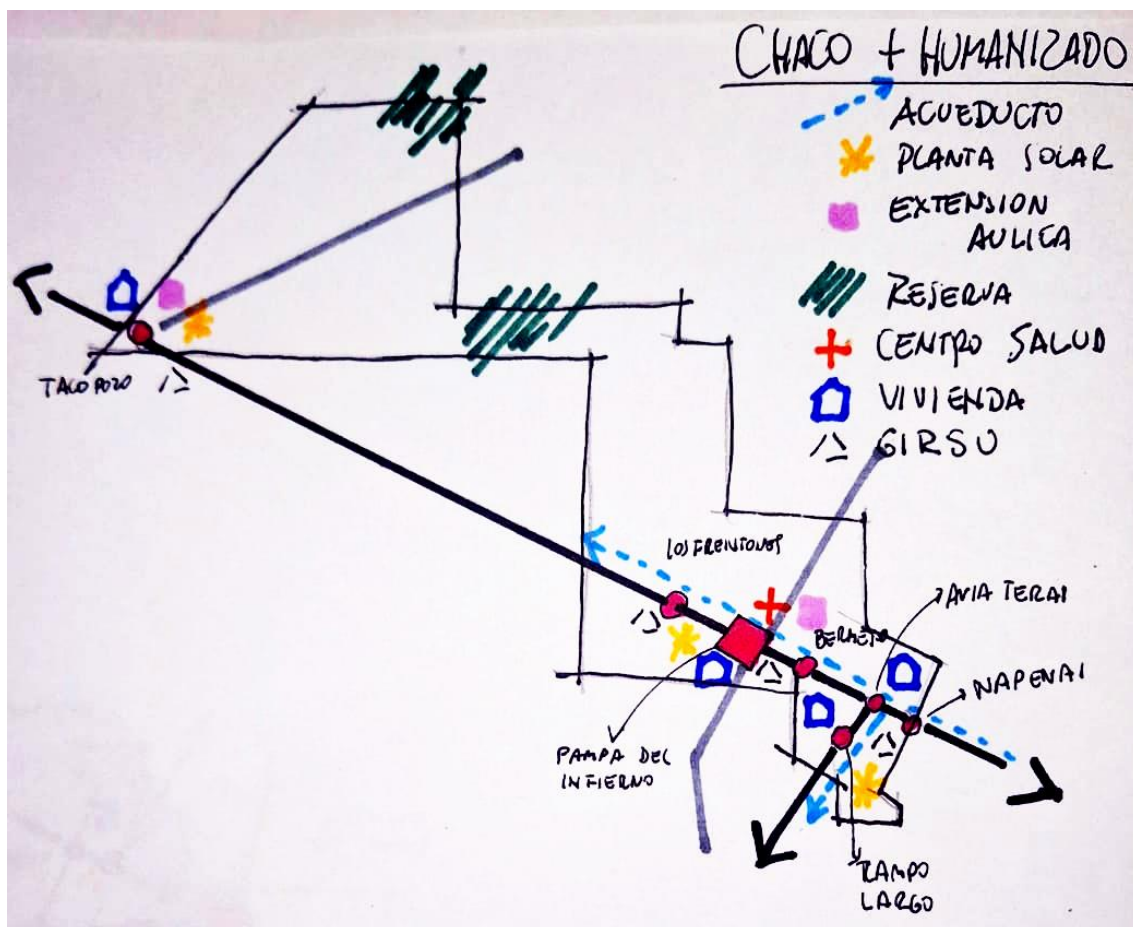 CHACO + HUMANIZADO
ACUEDUCTO
PLANTA SOLAR
EXTENSION
AULICA
RESERVA
CENTRO SALUD
VIVIENDA
GIRSU
TACO POZO
LOS FRENTONES
AVIA TERAI
BERMEJO
NAPENAI
PAMPA DEL
INFIERNO
KAMPO
LARGO